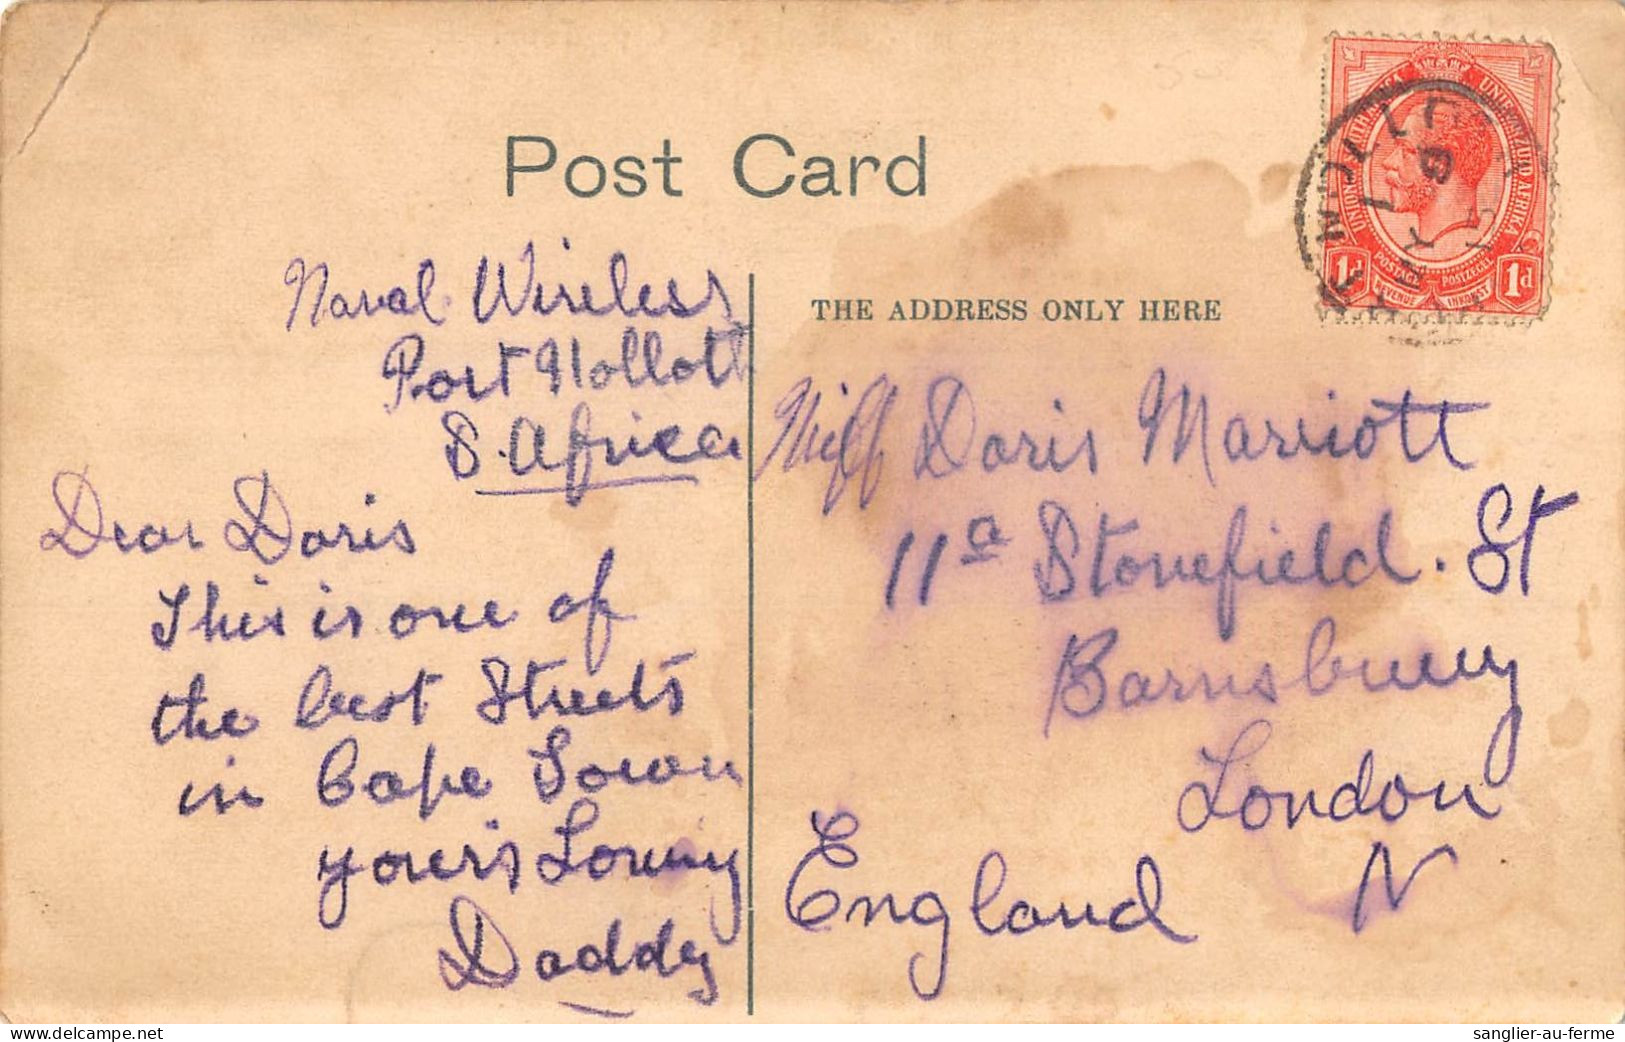 Post Card
Naval Wireless
Port Nolloth
S. Africa
Dear Doris
This is one of
the best Streets
in Cape Town
your's Loving
Daddy
THE ADDRESS ONLY HERE
Miss Doris Marriott
11a Stonefield. St
Barnsbury
London
N
England
UNIE VAN ZUID AFRIKA
POSTAGE POSTZEGEL
REVENUE INKOMST
1d 1d
sanglier-au-ferme